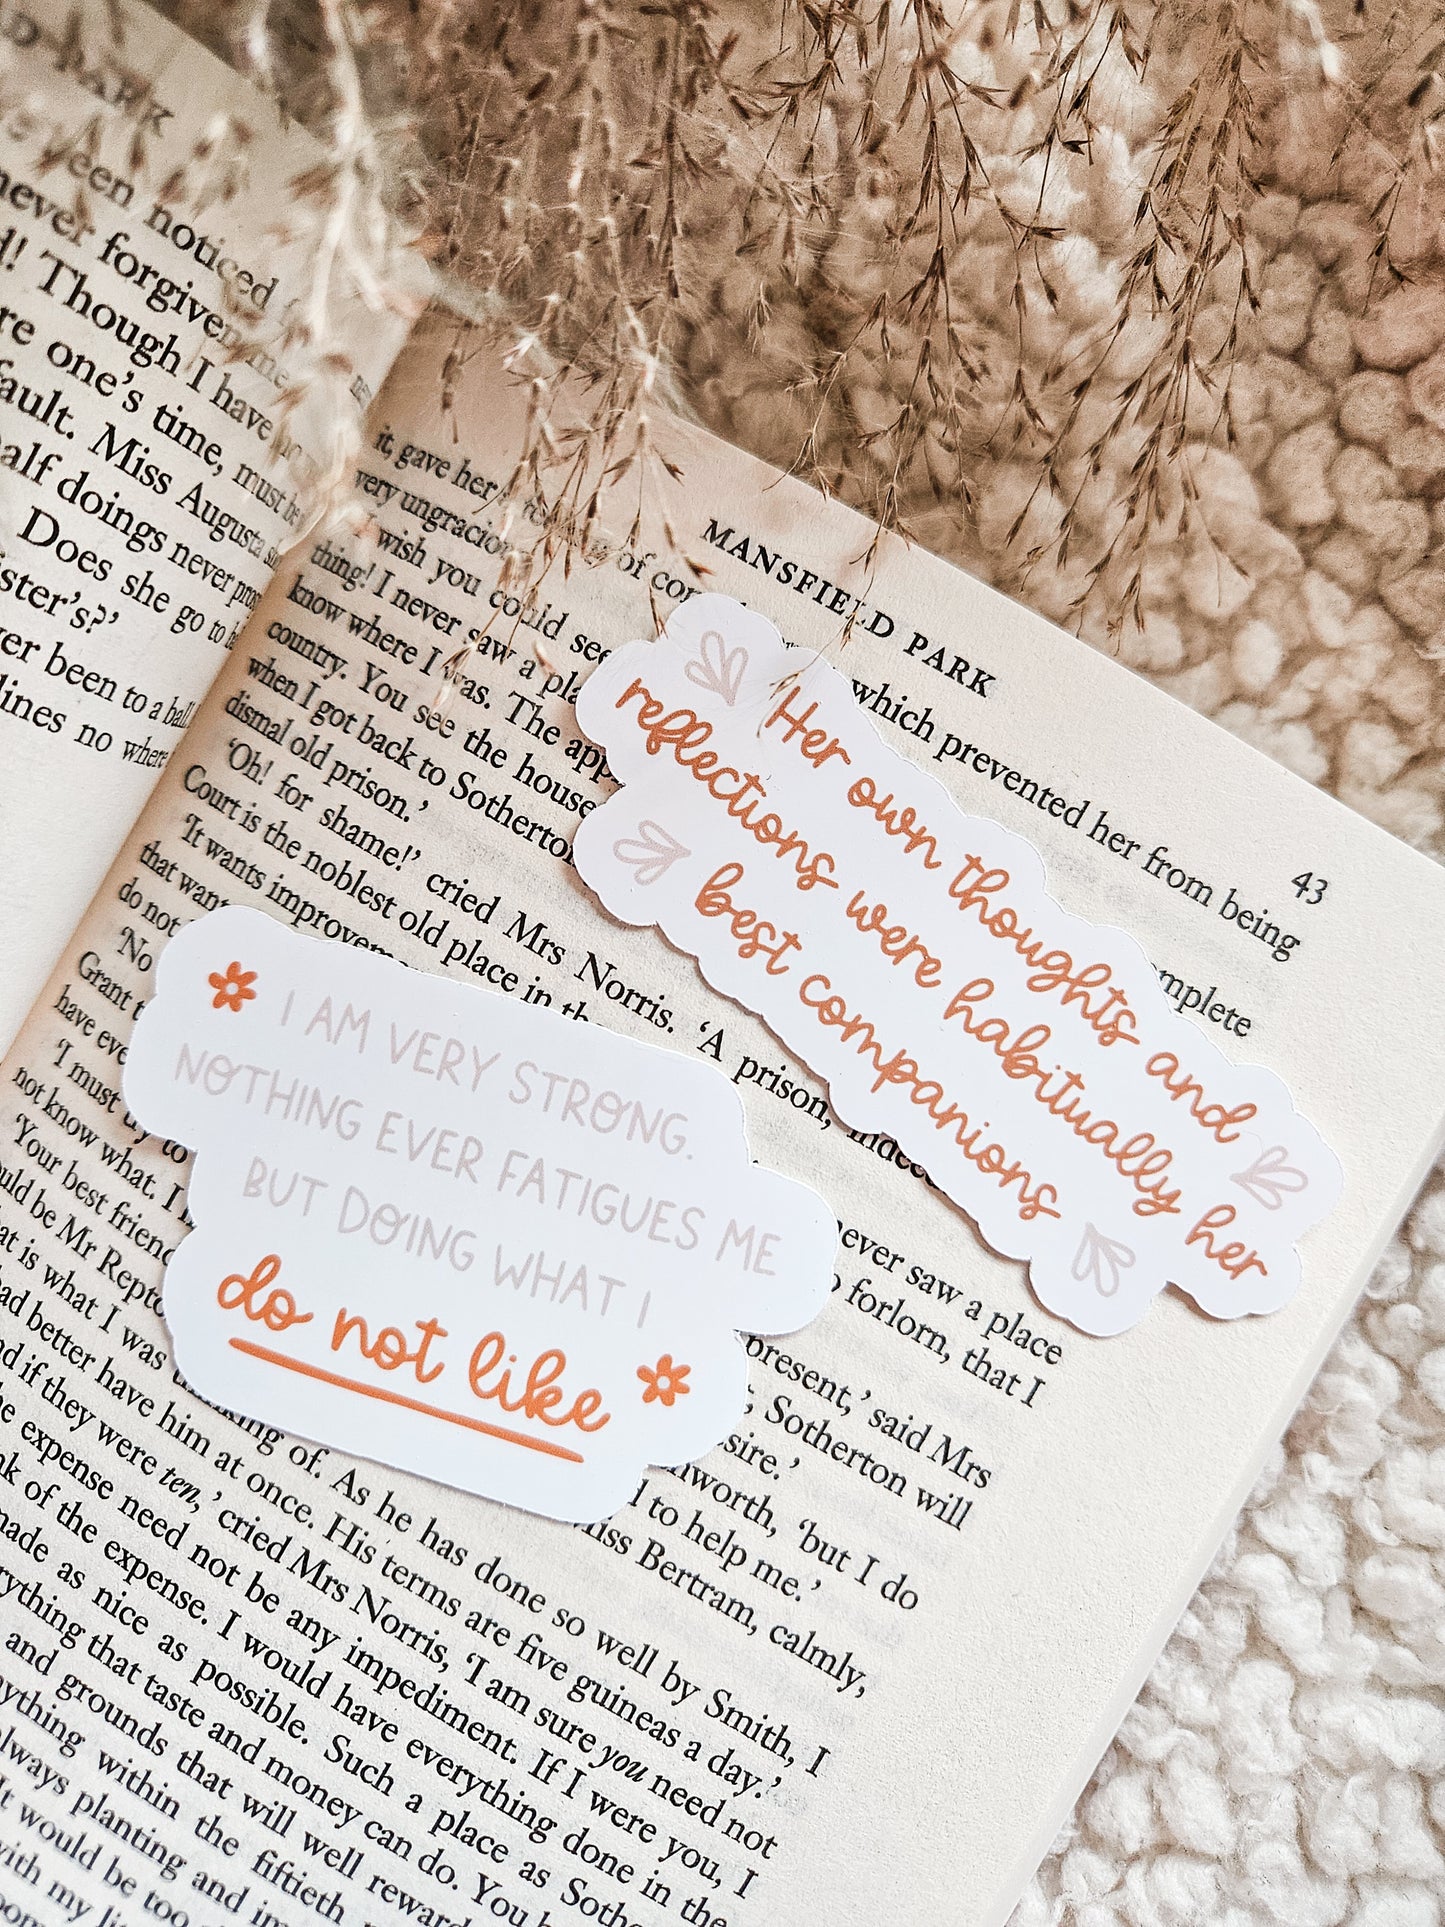 D PARK
been noticed
never forgiven me
d! Though I have no
re one's time, must be
fault. Miss Augusta
half doings never prop
Does she go to b
ister's?'
ver been to a ball
lines no where
MANSFIELD PARK
43
it, gave her of con which prevented her from being
very ungracio mplete
'I wish you could see
thing! I never saw a pla
know where I was. The app
country. You see the house
when I got back to Sotherton
dismal old prison.'
'Oh! for shame!' cried Mrs Norris. 'A prison, indeed
Court is the noblest old place in th
'It wants improveme
that want never saw a place
do not o forlorn, that I
'No
Grant t present,' said Mrs
have eve , Sotherton will
'I must try to sire.'
not know what. I nworth, 'but I do
'Your best friend d to help me.'
ould be Mr Repto Miss Bertram, calmly,
at is what I was thinking of. As he has done so well by Smith, I
ad better have him at once. His terms are five guineas a day.'
nd if they were ten,' cried Mrs Norris, 'I am sure you need not
he expense need not be any impediment. If I were you, I
nk of the expense. I would have everything done in the
made as nice as possible. Such a place as Sothe
rything that taste and money can do. You
and grounds that will well reward
nything within the fiftieth
always planting and im
It would be too
with my li
Her own thoughts and
reflections were habitually her
best companions
I AM VERY STRONG.
NOTHING EVER FATIGUES ME
BUT DOING WHAT I
do not like